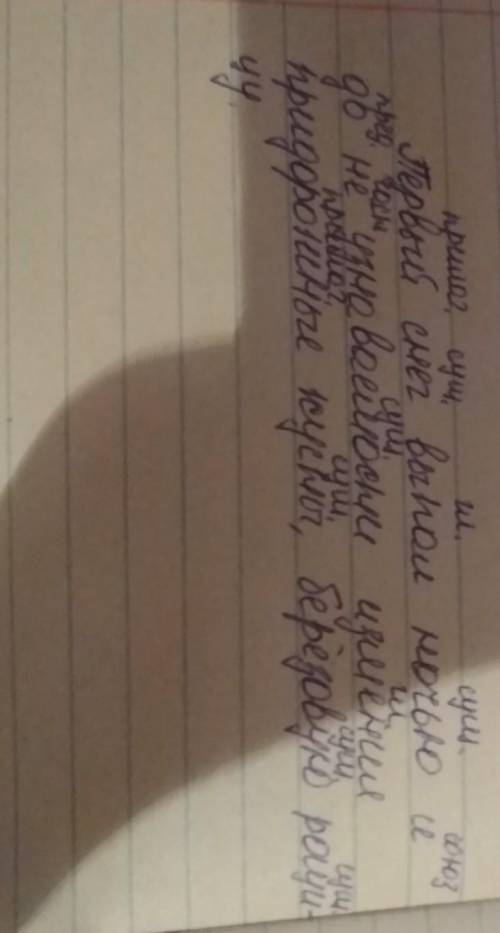 прилаг. сущ. гл. сущ. союз
Первый снег выпал ночью и
пред. част сущ гл
до не узноваемости изменил
прилаг. сущ. сущ сущ.
придорожные кусты, берёзовую рощи-
цу.